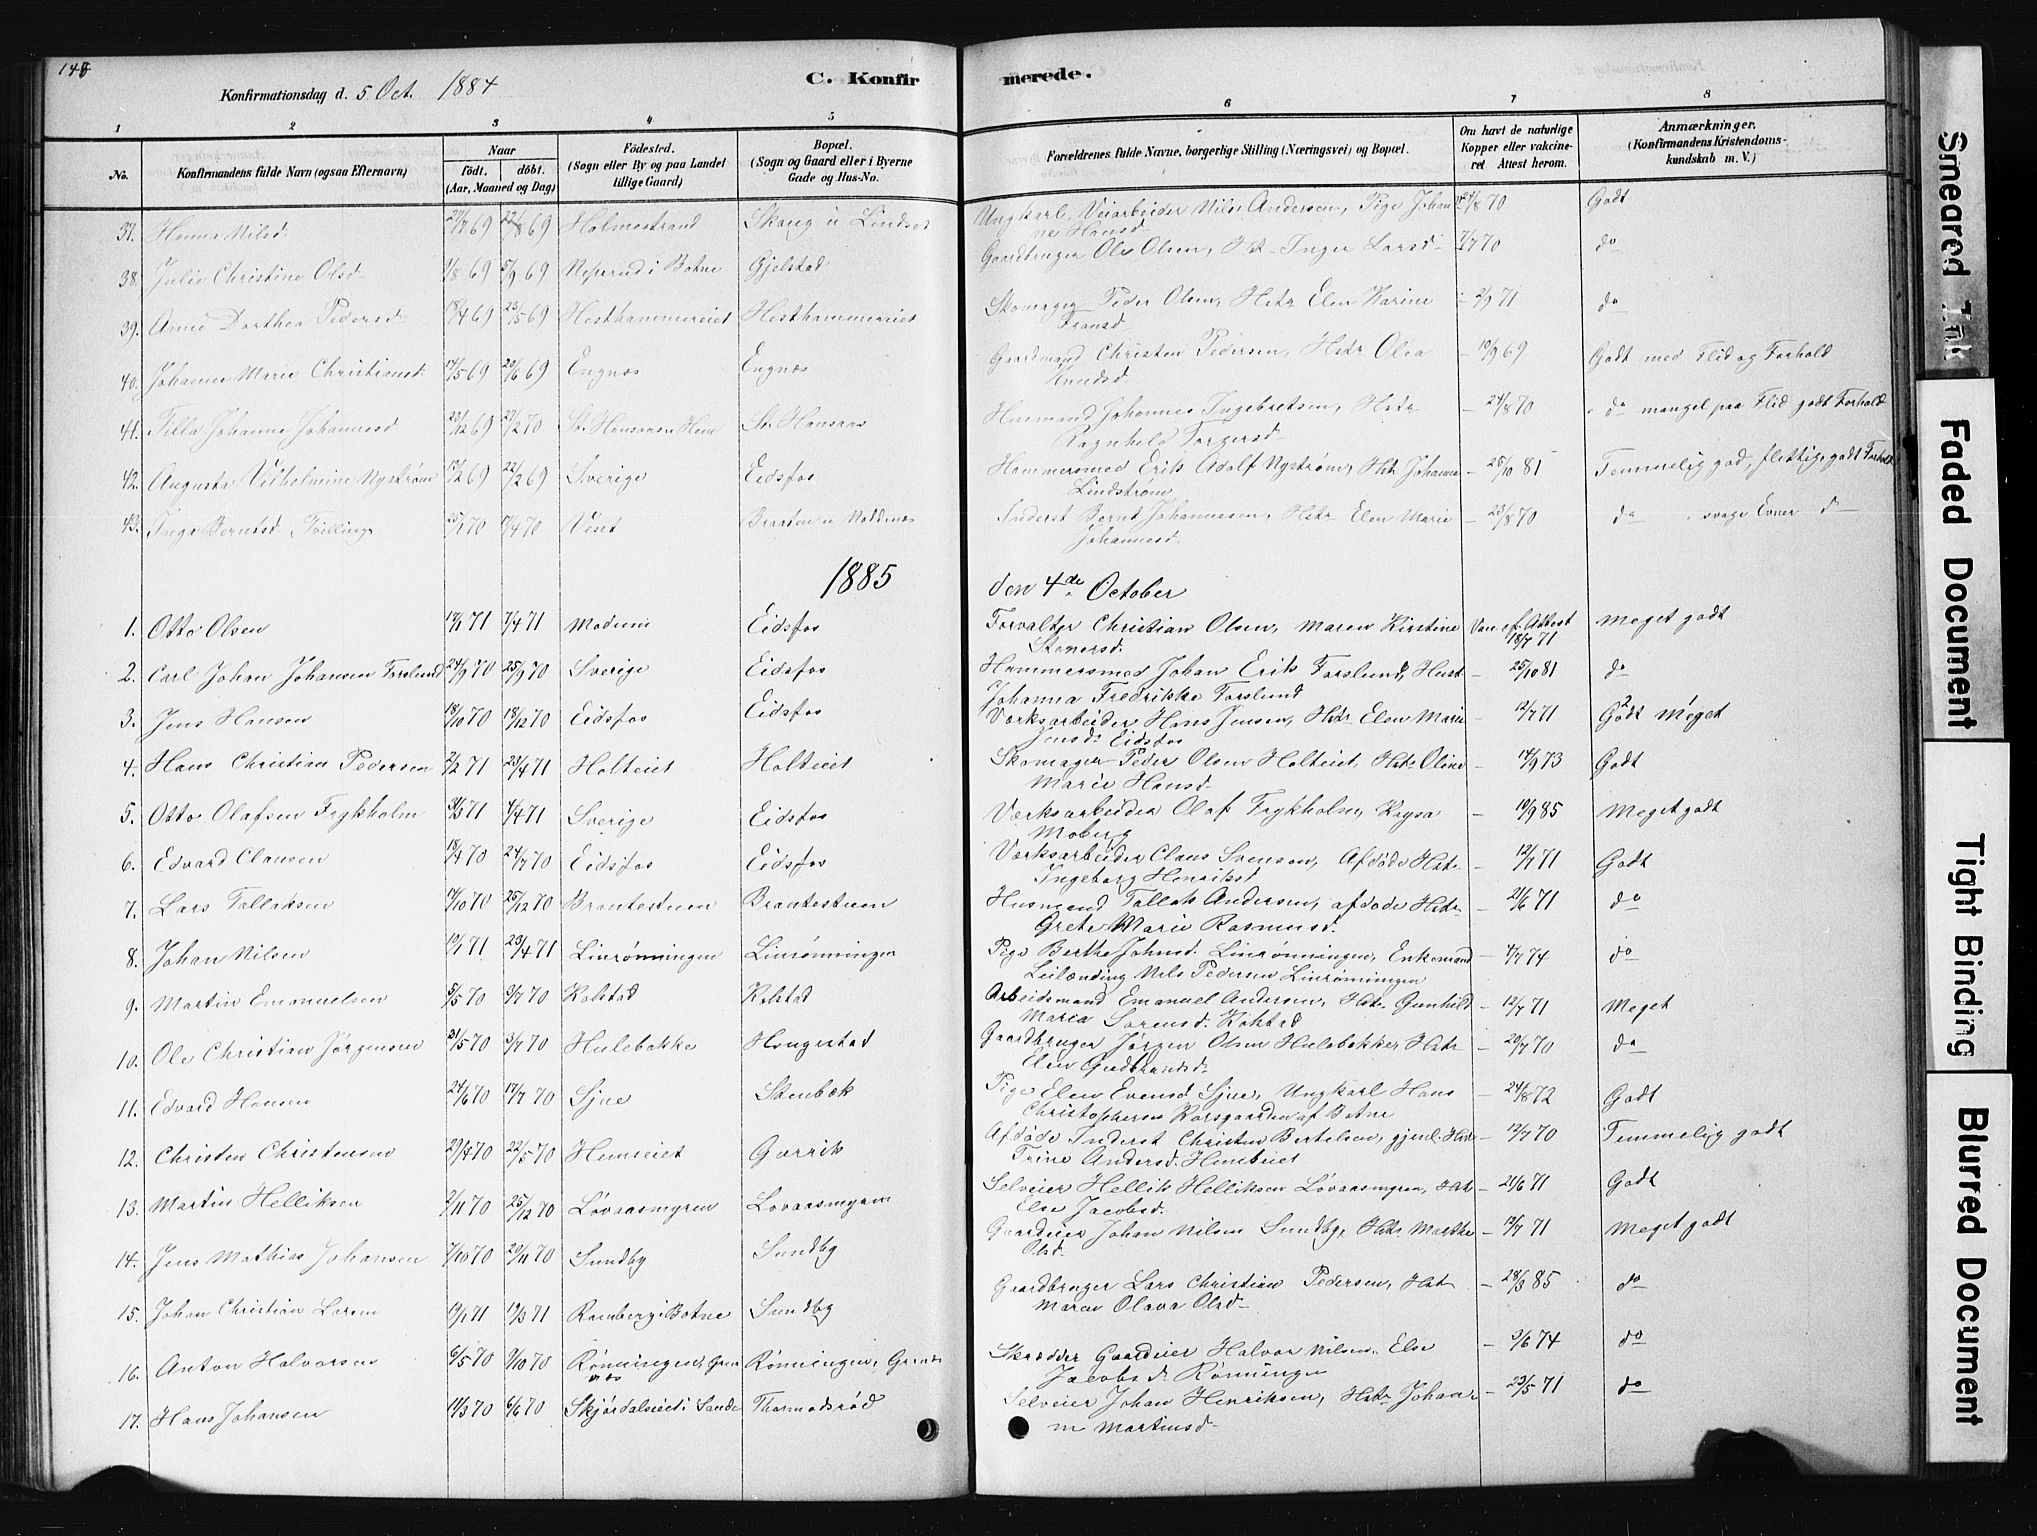 148
Konfirmationsdag d. 5 Oct. 1884
C. Konfir merede.
1 2 3 4 5 6 7 8
No. Konfirmandens fulde Navn (ogsaa Efternavn) Naar født. døbt. (Aar, Maaned og Dag) Fødested. (Sogn eller By og paa Landet tillige Gaard) Bopæl. (Sogn og Gaard eller i Byerne Gade og Hus-No. Forældrenes fulde Navne, borgerlige Stilling (Næringsvei) og Bopæl. Om havt de naturlige Kopper eller vakcineret Attest herom. Anmærkninger. (Konfirmandens Kristendomskundskab m. V.)
37. Hanna Nilsd. 27/7 69 22/8 69 Holmestrand Ungkarl, Veiarbeider Nils Andersen, Pige Johanne Hansd 24/8 70 Godt
38. Julie Christine Olsd 1/8 69 5/9 69 i Botne Gjelstad Gaardbruger Ole Olsen, Hstr Inger Larsd 7/7 70 do
39. Anne Dorthea Pedersd 18/4 69 23/5 69 Hesthammereiet Hesthammereiet Skomager Peder Olsen, Hstr Elen Karine Fransd - 2/9 71 do
40. Johanne Marie Christensd. 14/5 69 20/6 69 Engnæs Engnæs Gaardmand Christen Pedersen, Hstr Olea Knudsd - 10/9 69 Godt med Flid og Forhold
41. Tilla Johanne Johannesd 23/12 69 27/2 70 St. Hansaas Husmand Johannes Ingebretsen, Hstr Ragnhild Torgersd - 24/8 70 do mangel paa Flid godt Forhold
42. Augusta Vilhelmine Nystrøm 13/2 69 22/2 69 Sverige Eidsfos Hammersmed Erik Adolf Nystrøm, Hstr Johanna Lindstrøm - 25/10 81 Temmelig god, flittig, godt Forhold
43. Inga Berntsd Tvilling 25/1 70 17/4 70 Viset Braaten Inderst Bernt Johannesen, Hstr Elen Marie Johannesd. - 23/8 70 do svage Evner do
1885 den 4de October
1. Otto Olsen 17/1 71 7/4 71 Modum Eidsfos Forvalter Christian Olsen, Maren Kirstine Stenersd. Vac. af. Attest 18/7 71 Meget godt
2. Carl Johan Johansen Forslund 24/9 70 25/9 70 Sverige Eidsfos Hammersmed Johan Erik Forslund, Hust Johanna Fredrikke Forslund - 25/10 81 do
3. Jens Hansen 18/10 70 18/12 70 Eidsfos Eidsfos Værksarbeider Hans Jensen, Hstr Elen Marie Jensd. Eidsfos - 12/7 71 Godt Meget
4. Hans Christian Pedersen 2/2 71 23/4 71 Holteiet Holteiet Skomager Peder Olsen Holteiet, Hstr Oline Marie Hansd. - 14/9 73 Godt
5. Otto Olafsen Frykholm 31/3 71 4/4 71 Sverige Eidsfos Værksarbeider Olaf Frykholm, Kaysa Moberg - 10/9 85 Meget godt
6. Edvard Clausen 18/4 70 24/7 70 Eidsfos Eidsfos Værksarbeider Claus Svensen, Afdøde Hstr Ingeborg Henriksd - 12/7 71 Godt
7. Lars Tollaksen 14/10 70 25/12 70 Brantestuen Brantestuen Husmand Tollak Andersen, afdøde Hstr Grete Marie Rasmusd. - 21/6 71 do
8. Johan Nilsen 10/1 71 23/4 71 Linrønningen Linrønningen Pige Berthe Johnsd. Linrønningen, Enkemand Leilænding Nils Pedersen Linrønningen - 4/7 74 do
9. Martin Emanuelsen 5/5 70 3/7 70 Kolstad Kolstad Arbeidsmand Emanuel Andersen, Hstr Gunhild Maria Sørensd. Kolstad - 12/7 71 Meget
10. Ole Christian Jørgensen 31/5 70 3/7 70 Hulebakke Hængestad Gaardbruger Jørgen Olsen Hulebakke Hstr Elen Gudbrandsd. - 20/7 70 do
11. Edvard Hansen 24/6 70 17/7 70 Sjue Stenbæk Pige Elen Evensd Sjue, Ungkarl Hans Christophersen Korsgaarden af Botne - 24/8 72 Godt
12. Christen Christensen 29/4 70 22/5 70 Hemseiet Gavrik Afdøde Inderst Christen Bertelsen, gjenl. Hstr Trine Andersd. - 12/7 70 Temmelig godt
13. Martin Helliksen 2/11 70 25/12 70 Løvaasmyren Lovaasmyren Selveier Hellik Helliksen Løvaasmyren, Hstr Else Jacobsd. - 21/6 71 Godt
14. Jens Mathias Johansen 7/10 70 20/11 70 Sundby Sundby Gaardeier Johan Nilsen Sundby, Hstr Marthe Olsd. - 12/7 71 Meget godt
15. Johan Christian Larsen 19/1 71 19/3 71 Ramberg i Botne Sundby Gaardbruger Lars Christian Pedersen, Hstr Maren Olava Olsd - 28/3 85 do
16. Anton Halvorsen 6/5 70 9/10 70 Rønningen, Rønningen, Skrædder Gaardeier Halvor Nilsen, Else Jacobsd. Rønningen - 3/6 74 do
17. Hans Johansen 11/3 70 6/6 70 Skjørdalseiet i Sande Thormodsrød Selveier Johan Henriksen, Hstr Johanne Martinsd. - 23/5 71 do
Smeared Ink
Faded Document
Tight Binding
Blurred Document